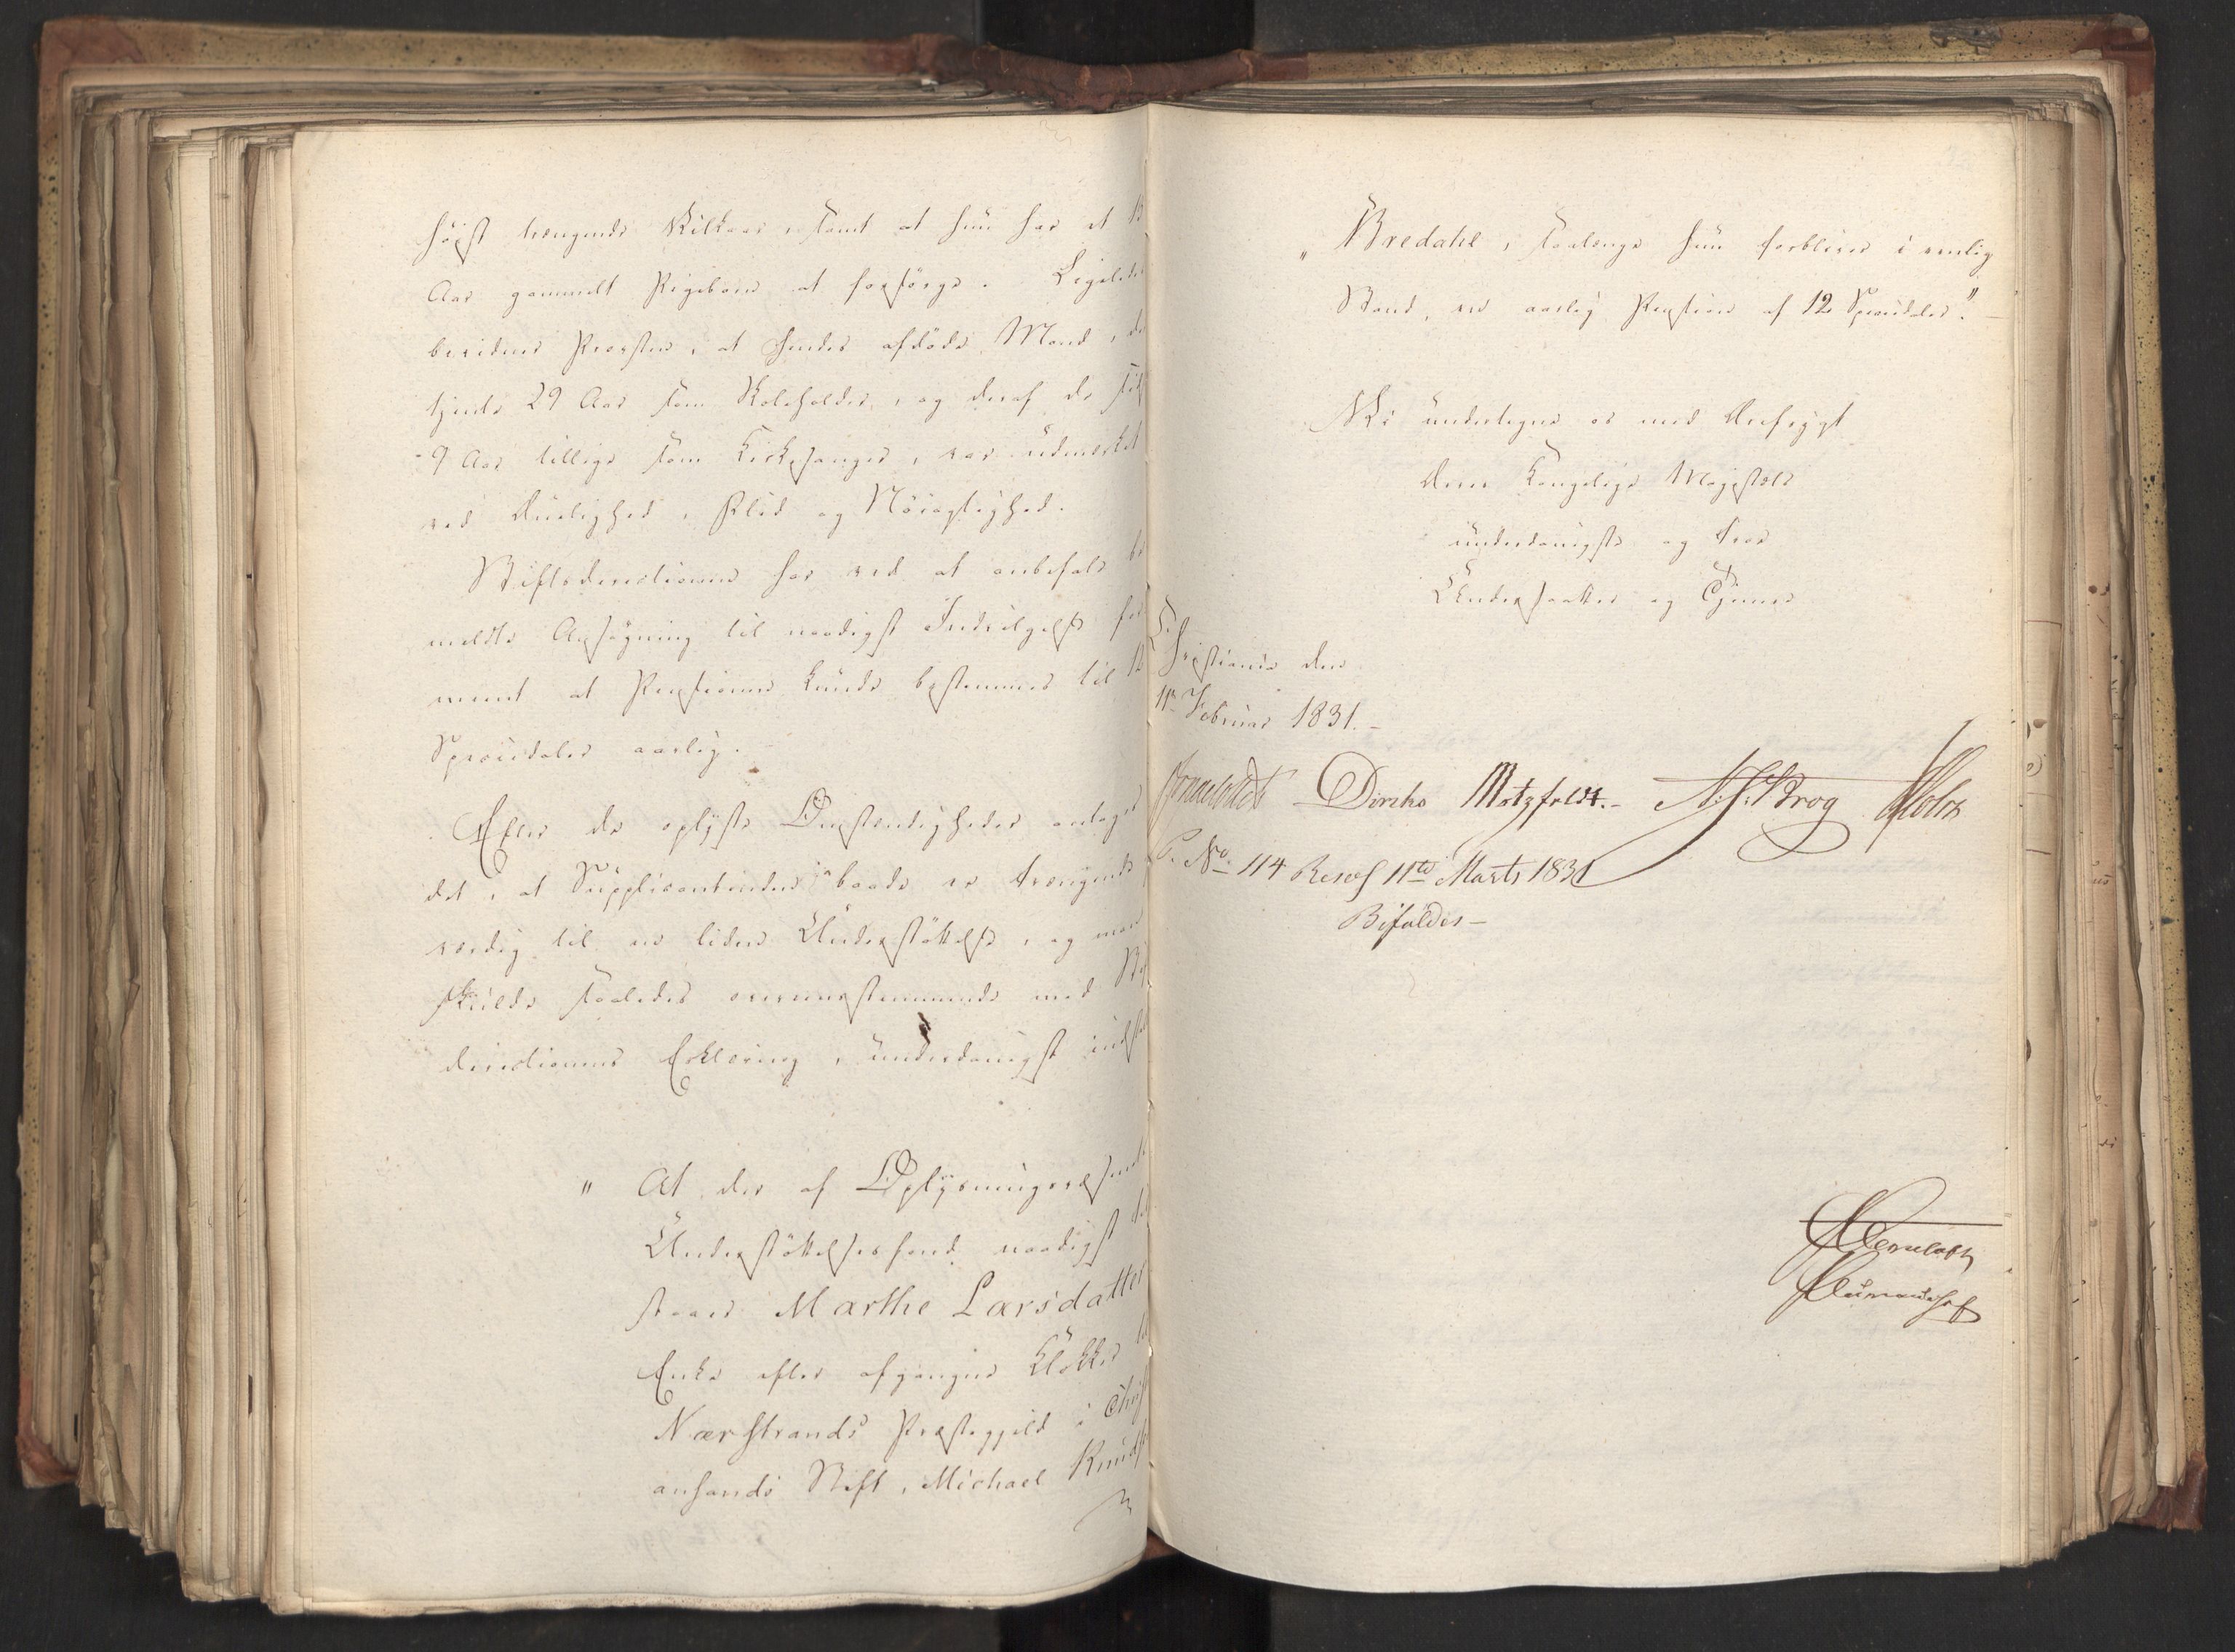 høist trængende Vilkaar, samt at hun har et
Aar gammelt Pigebarn at forsørge. Ligeledes
bevidner Provsten, at hendes afdøde Mand, der
tjente 29 Aar som Skoleholder, og deraf de sidste
9 Aar tillige som Kirkesanger, var udmærket
ved Duelighed, Flid og Nøiagtighed.
Stiftsdirectionen har ved at anbefale be
meldte Ansøgning til naadigst Indvilgelse for
ment at Pensionen kunde bestemmes til 12
Speciedaler aarlig.
Efter de oplyste Omstændigheder antages
det, at Supplicantinden baade er trængende
værdig til en liden Understøttelse, og man
skulde saaledes overensstemmende med Stifts
directionens Erklæring, underdanigst indstille
" At der af Oplysningsvæsenets
Understøttelsesfond naadigst til
staaes Marthe Larsdatter
Enke efter afgangne Klokker til
Nærstrands Præstegjeld i Christi
ansands Stift, Michael Knudsen
" Bredahl, saalenge hun forbliver i enlig
Stand, en aarlig Pension af 12 Speciedaler." -
Vi undertegne os med Ærefrygt
Deres Kongelige Majestæts
underdanigste og troe
Undersaatter og Tjenere
Christiania den
11te Februar 1831. -
Diriks Motzfeldt. - Krog Holst
P. No. 114 Resol 11te Marts 1831
Bifaldes -